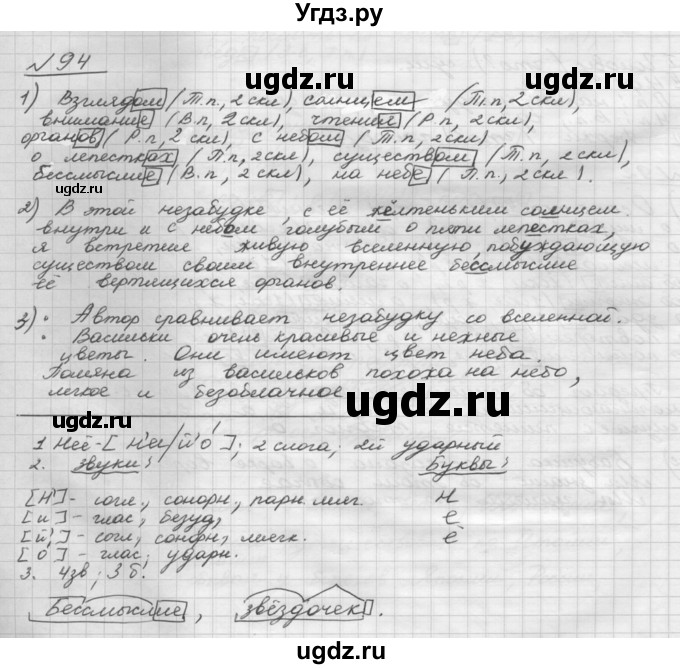 Угдз.ру
№94
1) Взглядом (Т.п, 2 скл), солнцем (Т.п, 2 скл),
внимание (В.п, 2 скл), чтения (Р.п, 2 скл),
органов (Р.п, 2 скл), с небом (Т.п, 2 скл)
о лепестках (П.п, 2 скл), существом (Т.п, 2 скл),
бессмыслие (В.п, 2 скл), на небе (П.п, 2 скл).
2) В этой незабудке, с её жёлтеньким солнцем
внутри и с небом голубым о пяти лепестках,
я встретил живую вселенную, побуждающую
существом своим внутреннее бессмыслие
её вертящихся органов.
3) • Автор сравнивает незабудку со вселенной.
• Васильки очень красивые и нежные
цветы. Они имеют цвет неба.
Поляна из васильков похожа на небо,
легкое и безоблачное
1 Неё - [н'ий'о́]; 2 слога; 2й ударный
2. звуки: Буквы:
[н'] - согл., сонорн., парн. мягк. Н
[и] - глас, безуд, е
[й'] - согл, сонорн, мягк. ё
[о́] - глас, ударн.
3. 4 зв; 3 б.
Бессмыслие, звёздочек.
gdz.ru
gdz.ru
gdz.ru
gdz.ru
gdz.ru
gdz.ru
gdz.ru
gdz.ru
gdz.ru
gdz.ru
gdz.ru